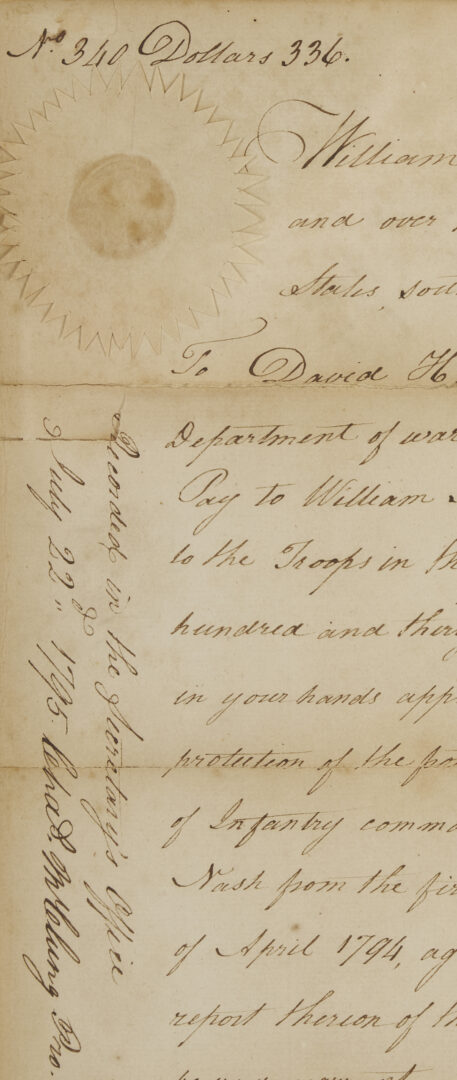 No. 340 Dollars 336.
William
and over
States, sout
To David H.
Department of war
Pay to William
to the Troops in th
hundred and thir
in your hands app
protection of the
of Infantry comma
Nash from the fir
of April 1794, ag
report thereon of th
Recorded in the Secretary's Office
July 22d 1795. Chas. McClung Pro.